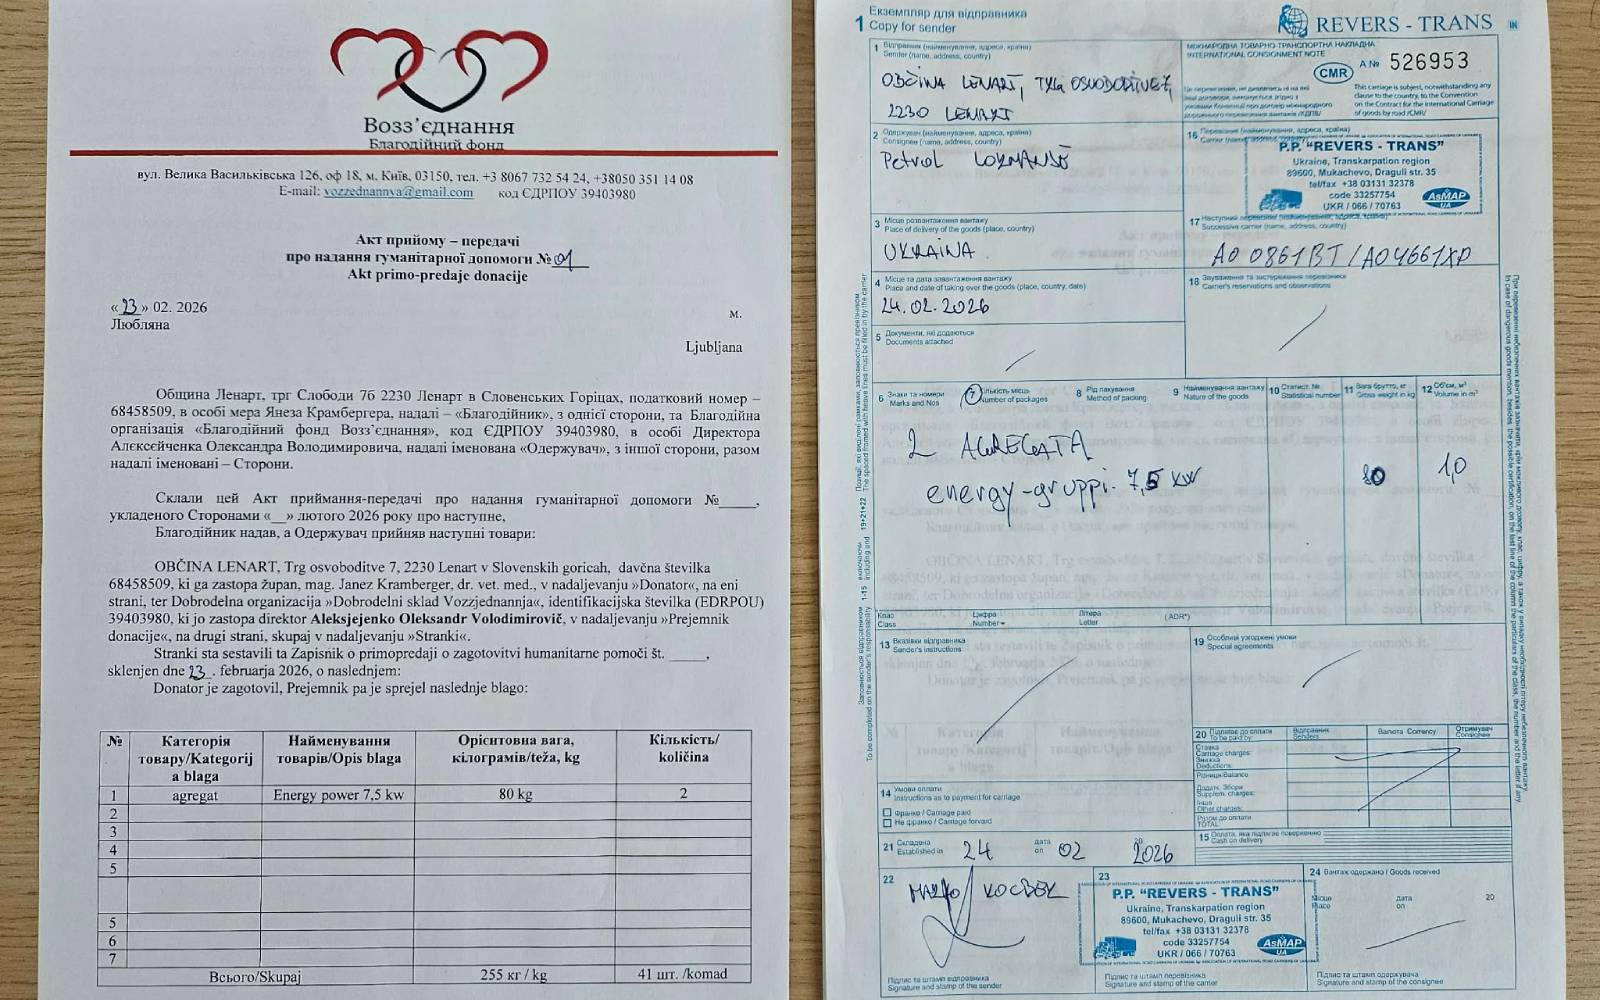 Возз’єднання
Благодійний фонд
вул. Велика Васильківська 126, оф 18, м. Київ, 03150, тел. +3 8067 732 54 24, +38050 351 14 08
E-mail: vozzednannya@gmail.com код ЄДРПОУ 39403980
Акт прийому – передачі
про надання гуманітарної допомоги № 01
Akt primo-predaje donacije
«23» 02. 2026
м.
Любляна
Ljubljana
Община Ленарт, трг Слободи 7б 2230 Ленарт в Словенських Горіцах, податковий номер –
68458509, в особі мера Янеза Крамбергера, надалі – «Благодійник», з однієї сторони, та Благодійна
організація «Благодійний фонд Возз’єднання», код ЄДРПОУ 39403980, в особі Директора
Алєксєйченка Олександра Володимировича, надалі іменована «Одержувач», з іншої сторони, разом
надалі іменовані – Сторони.
Склали цей Акт приймання-передачі про надання гуманітарної допомоги №_____,
укладеного Сторонами «__» лютого 2026 року про наступне,
Благодійник надав, а Одержувач прийняв наступні товари:
OBČINA LENART, Trg osvoboditve 7, 2230 Lenart v Slovenskih goricah, davčna številka
68458509, ki ga zastopa župan, mag. Janez Kramberger, dr. vet. med., v nadaljevanju »Donator«, na eni
strani, ter Dobrodelna organizacija »Dobrodelni sklad Vozzjednannja«, identifikacijska številka (EDRPOU)
39403980, ki jo zastopa direktor Aleksjejenko Oleksandr Volodimirovič, v nadaljevanju »Prejemnik
donacije«, na drugi strani, skupaj v nadaljevanju »Stranki«.
Stranki sta sestavili ta Zapisnik o primopredaji o zagotovitvi humanitarne pomoči št. _____,
sklenjen dne 23. februarja 2026, o naslednjem:
Donator je zagotovil, Prejemnik pa je sprejel naslednje blago:
№ Категорія товару/Kategorija blaga Найменування товарів/Opis blaga Орієнтовна вага, кілограмів/teža, kg Кількість/količina
1 agregat Energy power 7,5 kw 80 kg 2
2
3
4
5
5
6
7
Всього/Skupaj 255 кг / kg 41 шт. /komad
1 Екземпляр для відправника
Copy for sender
REVERS - TRANS
1 Відправник (найменування, адреса, країна)
Sender (name, address, country)
OBČINA LENART, TRG OSVOBODITVE 7,
2230 LENART
МІЖНАРОДНА ТОВАРНО-ТРАНСПОРТНА НАКЛАДНА
INTERNATIONAL CONSIGNMENT NOTE
CMR A № 526953
This carriage is subject, notwithstanding any
clause to the country, to the Convention
on the Contract for the International Carriage
of goods by road /CMR/
2 Одержувач (найменування, адреса, країна)
Consignee (name, address, country)
Petrol
16
P.P. “REVERS - TRANS”
Ukraine, Transkarpation region
89600, Mukachevo, Draguli str. 35
tel/fax +38 03131 32378
code 33257754
UKR / 066 / 70763
AsMAP
UA
3 Місце розвантаження вантажу
Place of delivery of the goods (place, country)
UKRAINA
17
Successive carrier (name, address, country)
AO 0861BT / AO4661XP
4 Місце та дата завантаження вантажу
Place and date of taking over the goods (place, country, date)
24.02.2026
18 Зауваження та застереження перевізника
Carrier's reservations and observations
5 Документи, які додаються
Documents attached
6 Знаки та номери
Marks and Nos
7 Кількість місць
Number of packages
8 Рід пакування
Method of packing
9 Найменування вантажу
Nature of the goods
10 Статист. №
Statistical number
11 Вага брутто, кг
Gross weight in kg
12 Об'єм, м³
Volume in m³
2 AGREGATA
energy-gruppi. 7,5 KW
80
1,0
Клас
Class
Цифра
Number
Літера
Letter
(ADR*)
13 Вказівки відправника
Sender's instructions
19 Особливі узгоджені умови
Special agreements
20 Підлягає до сплати
To be paid by:
Відправник
Senders
Валюта Currency
Отримувач
Consignee
Ставка
Carriage charges:
Знижка
Deductions:
Різниця/Balance
Додатк. збори
Supplem. charges:
Інше
Other charges:
Разом до сплати
TOTAL:
14 Умови оплати
Instructions as to payment for carriage
Франко / Carriage paid
Не франко / Carriage forward
15 Оплата, яка підлягає поверненню
Cash on delivery
21 Складена
Established in
24
дата
on
02
2026
22
MARKO KOCBEK
23
P.P. “REVERS - TRANS”
Ukraine, Transkarpation region
89600, Mukachevo, Draguli str. 35
tel/fax +38 03131 32378
code 33257754
UKR / 066 / 70763
AsMAP
UA
24 Вантаж одержано / Goods received
Місце
Place
дата
on
20
Підпис та штамп відправника
Signature and stamp of the sender
Підпис та штамп перевізника
Signature and stamp of the carrier
Підпис та штамп одержувача
Signature and stamp of the consignee